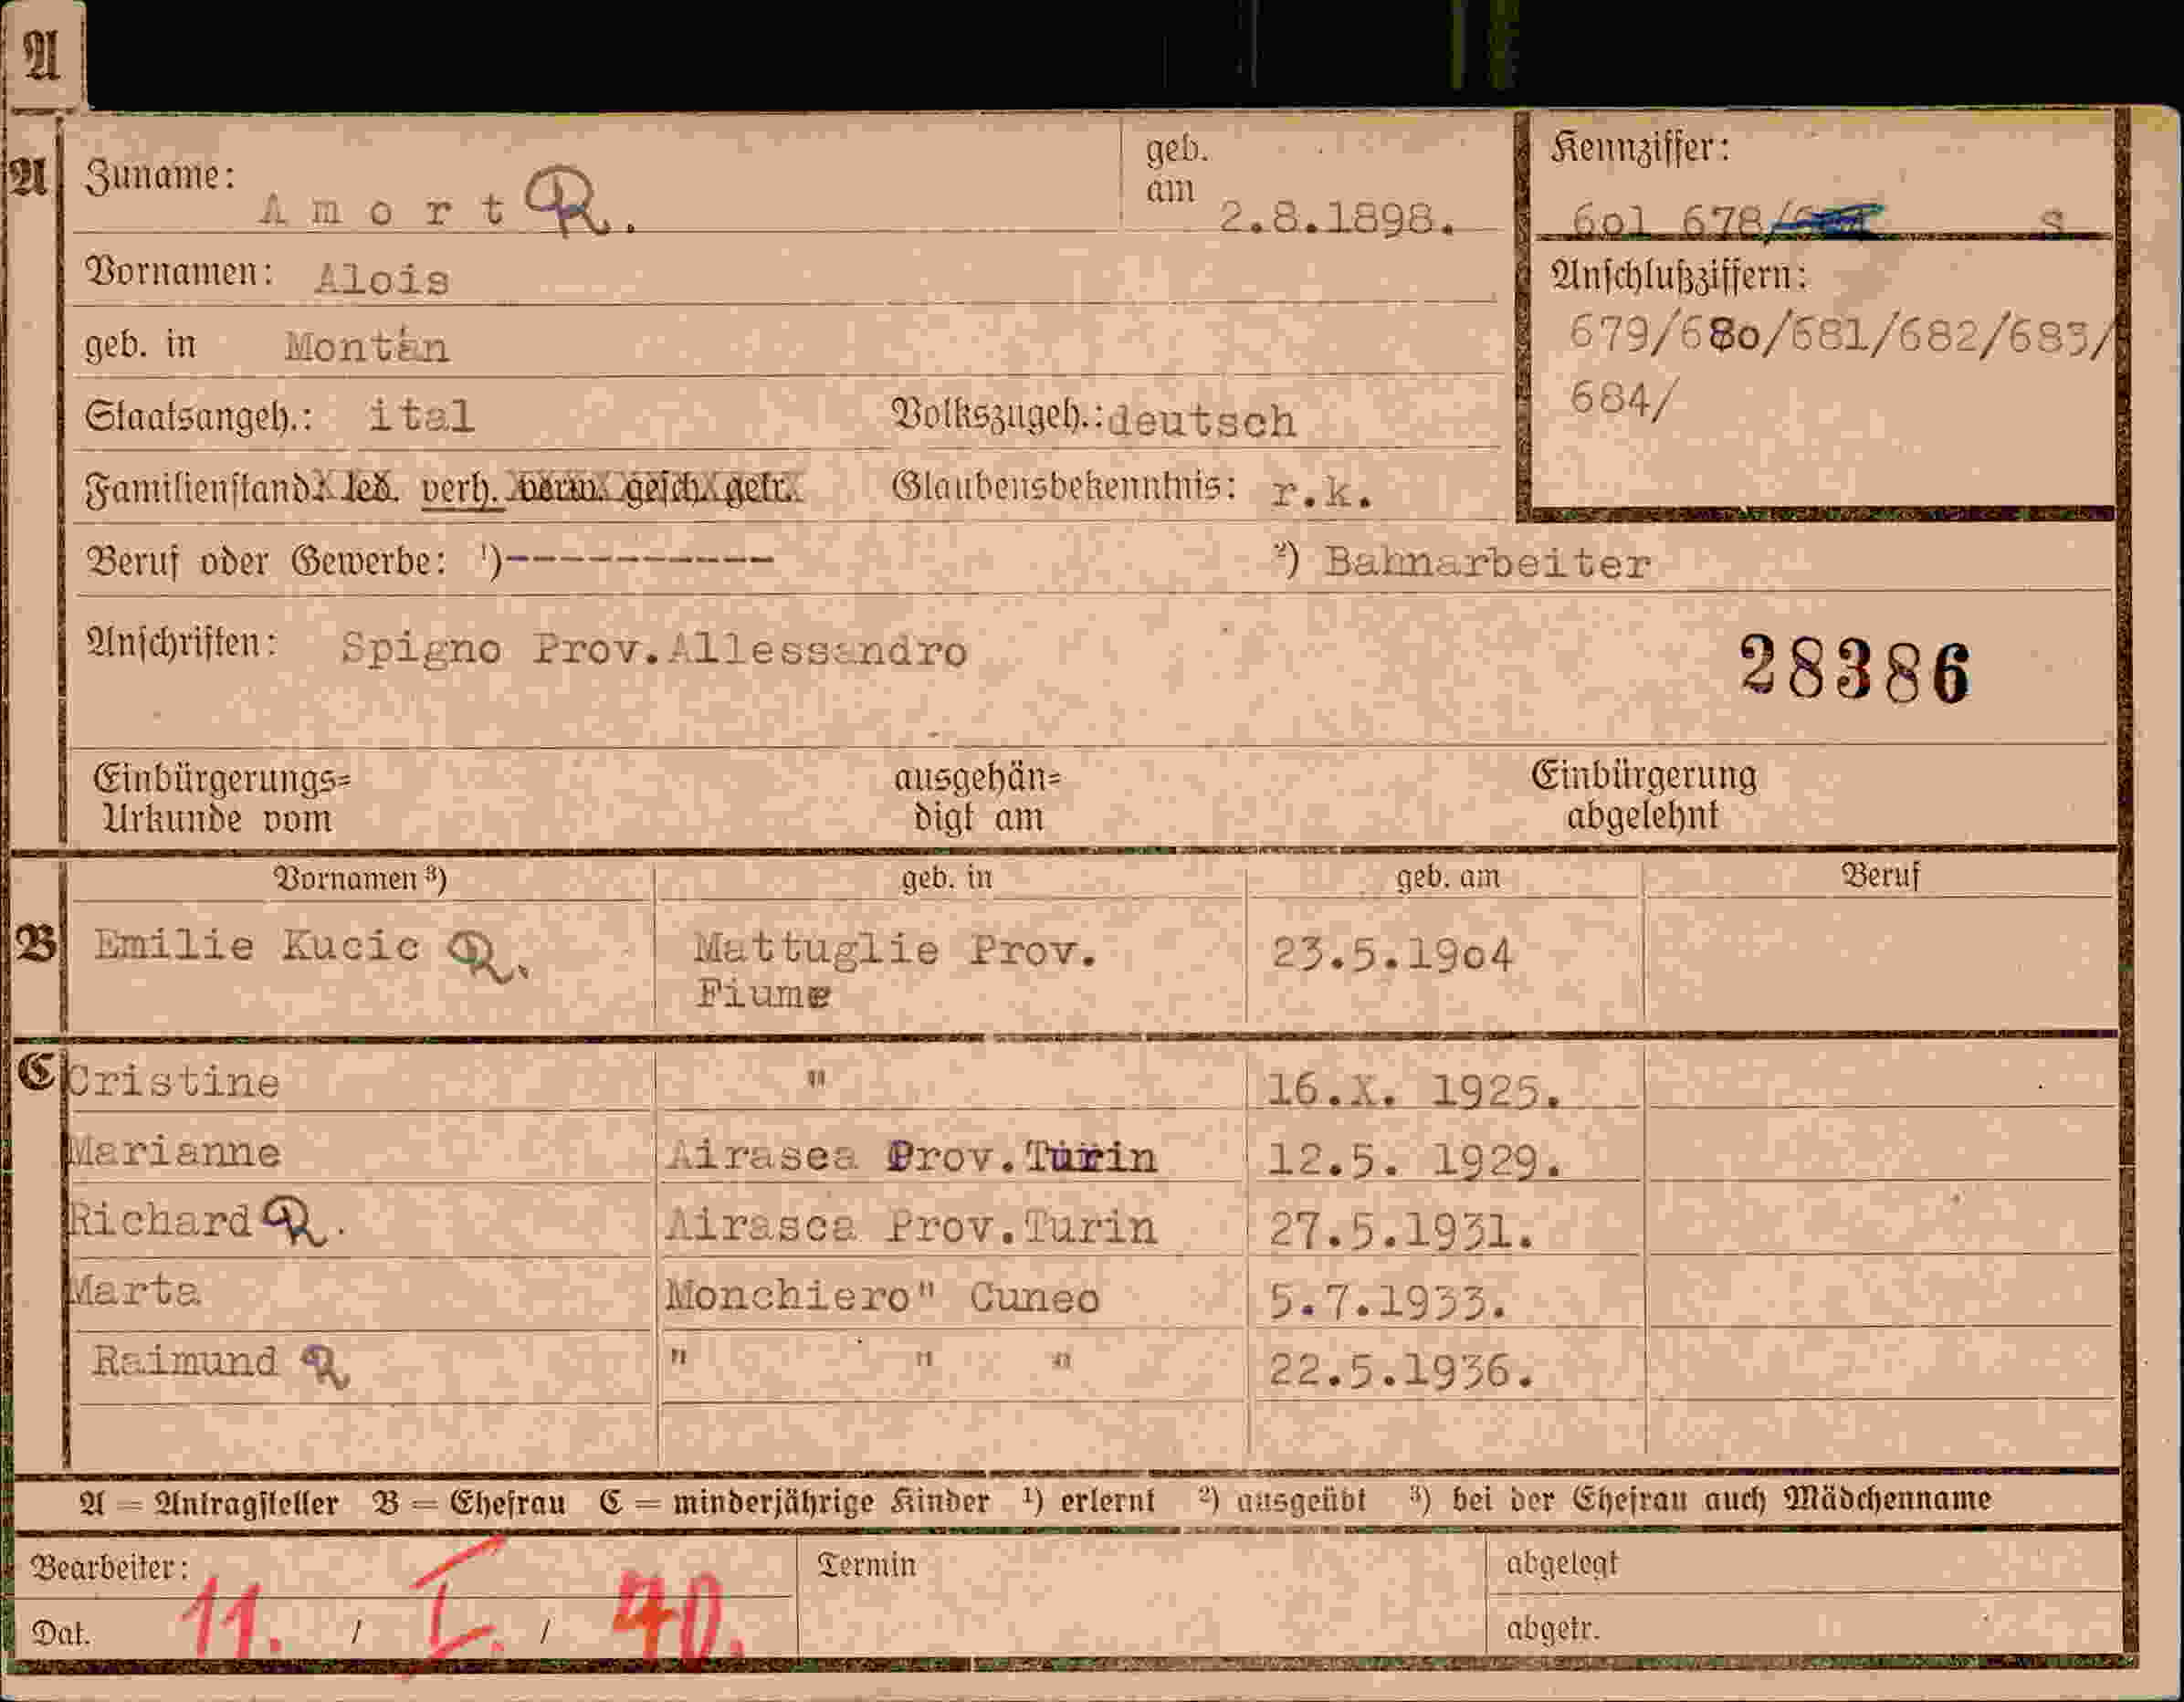 A
A
Zuname: Amort R.
geb. am 2.8.1898.
Kennziffer:
6o1 678/ S
Vornamen: Alois
Anschlußziffern:
679/68o/681/682/683/
684/
geb. in Montan
Staatsangeh.: ital Volkszugeh.: deutsch
Familienstand: led. verh. verw. gesch. getr. Glaubensbekenntnis: r.k.
Beruf oder Gewerbe: ¹)----------- ²) Bahnarbeiter
Anschriften: Spigno Prov.Allessandro
28386
Einbürgerungs= Urkunde vom
ausgehän= digt am
Einbürgerung abgelehnt
Vornamen ³) geb. in geb. am Beruf
B Emilie Kucic R. Mattuglie Prov. 23.5.19o4
Fiume
C Cristine " 16.X. 1925.
Marianne Airasca Prov.Turin 12.5. 1929.
Richard R. Airasca Prov.Turin 27.5.1931.
Marta Monchiero" Cuneo 5.7.1933.
Raimund R " " " 22.5.1936.
A = Antragsteller B = Ehefrau C = minderjährige Kinder ¹) erlernt ²) ausgeübt ³) bei der Ehefrau auch Mädchenname
Bearbeiter: Termin abgelegt
Dat. 11. / I. / 40. abgetr.